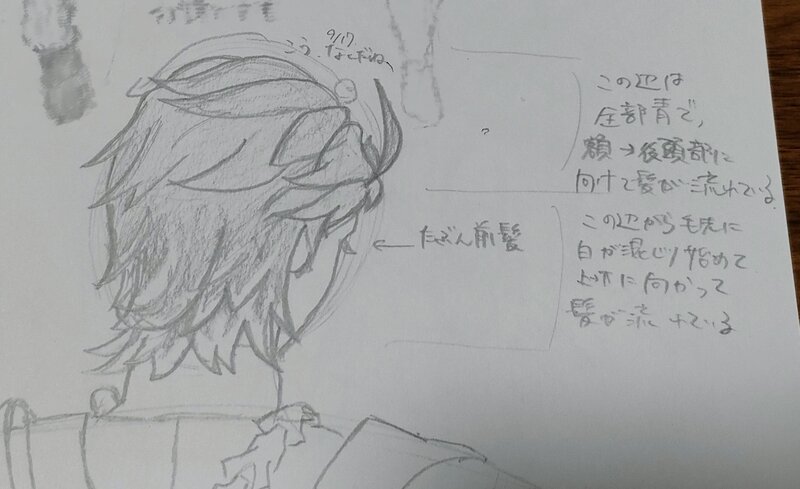 9/17
こう、なんだね、
この辺は
全部青で、
額→後頭部に
向けて髪が流れている
たぶん前髪
この辺から毛先に
白が混じり始めて
向かって
髪が流れている